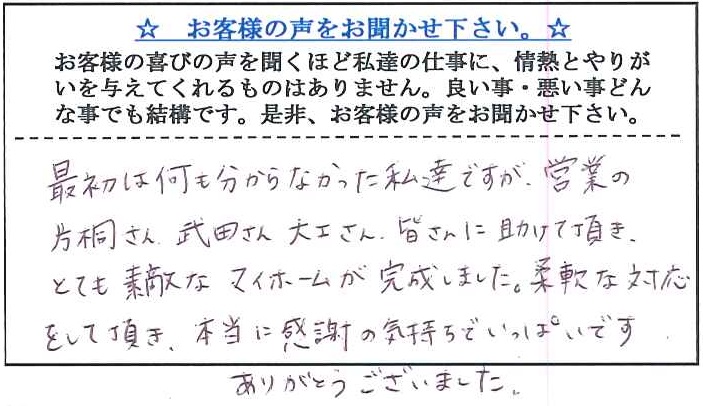 ☆　お客様の声をお聞かせ下さい。☆
お客様の喜びの声を聞くほど私達の仕事に、情熱とやりが
いを与えてくれるものはありません。良い事・悪い事どん
な事でも結構です。是非、お客様の声をお聞かせ下さい。
最初は何も分からなかった私達ですが、営業の
片桐さん、武田さん、大工さん、皆さんに助けて頂き、
とても素敵なマイホームが完成しました。柔軟な対応
をして頂き、本当に感謝の気持ちでいっぱいです
ありがとうございました。